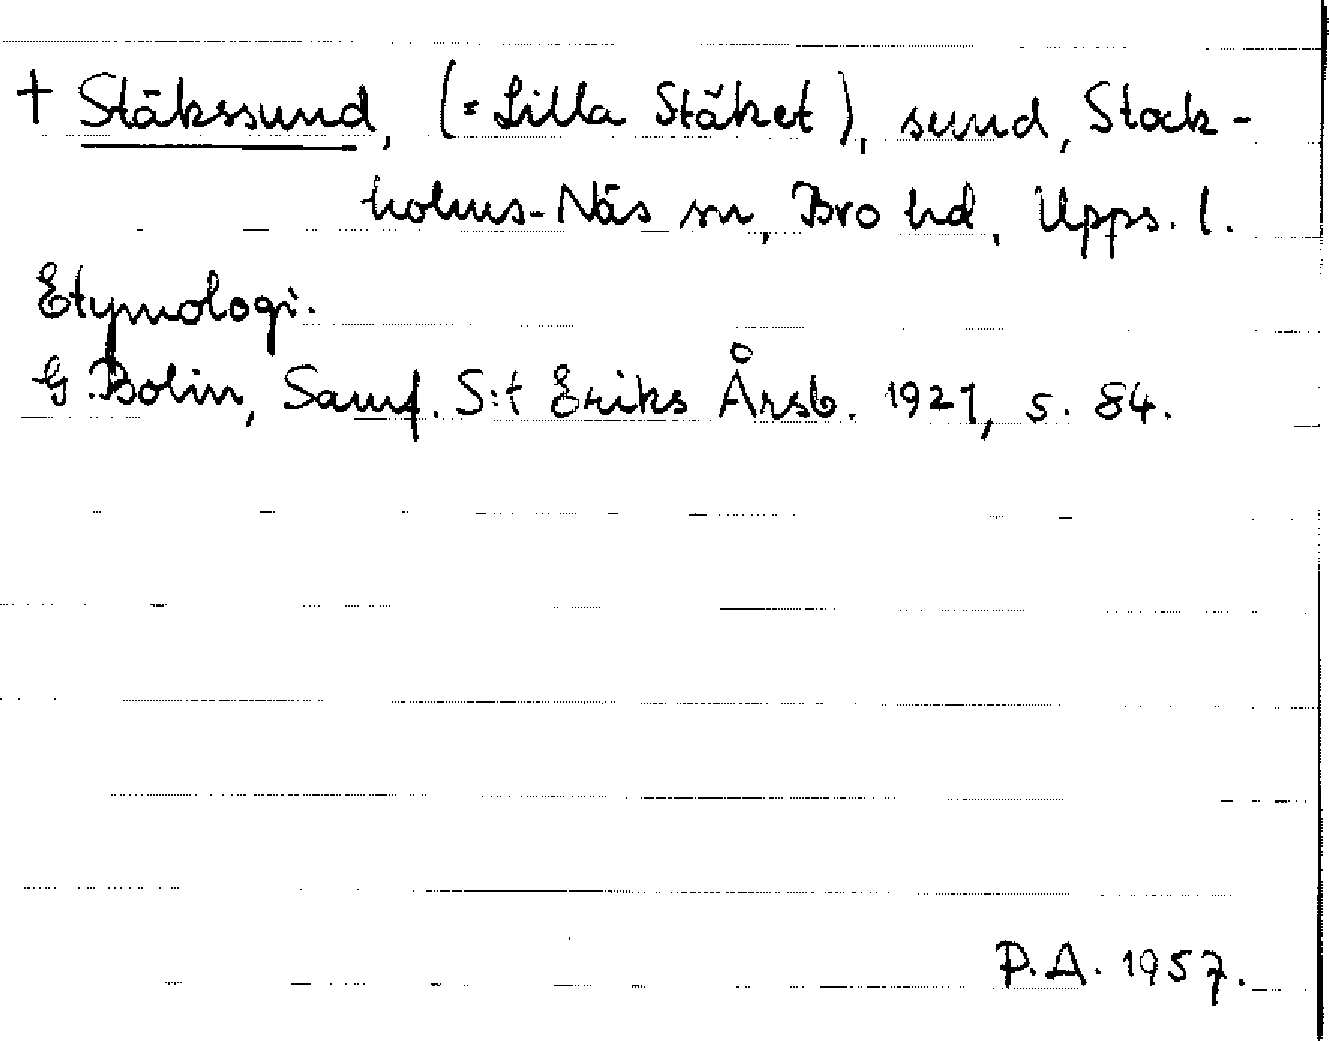 † Stäkssund, (= Lilla Stäket), sund, Stock-
holms-Näs sn, Bro hd, Upps. l.
Etymologi.
G. Bolin, Samf. S:t Eriks Årsb. 1927, s. 84.
P.A. 1957.